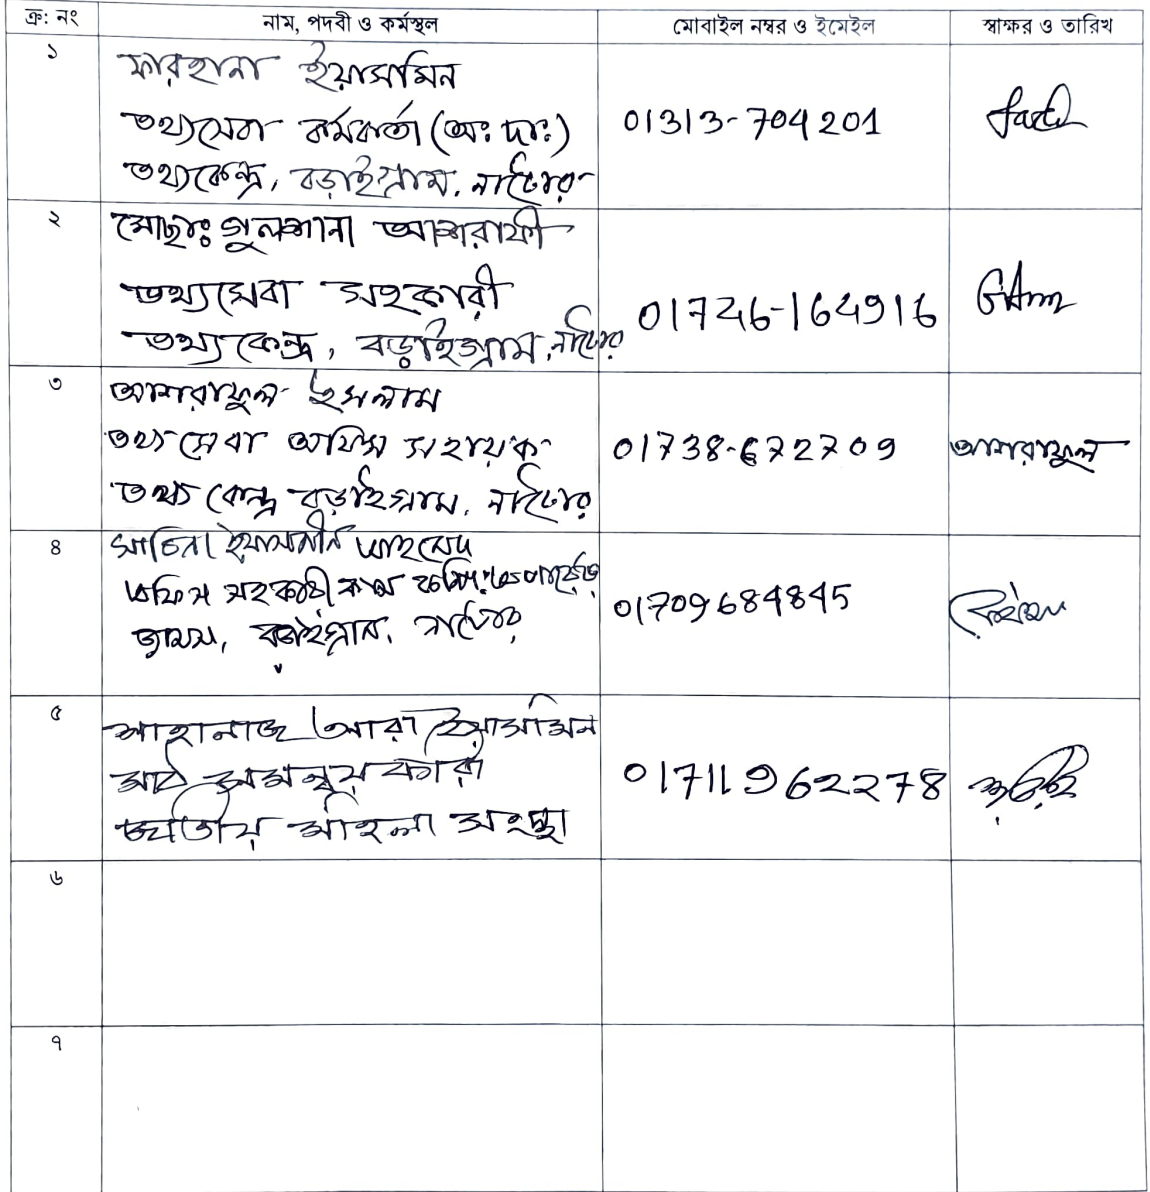 ক্র: নং নাম, পদবী ও কর্মস্থল মোবাইল নম্বর ও ইমেইল স্বাক্ষর ও তারিখ
১
ফারহানা ইয়াসমিন
তথ্যসেবা কর্মকর্তা (অ: দা:)
তথ্যকেন্দ্র, বড়াইগ্রাম, নাটোর
01313-704201
২
মোছাঃ গুলশানা আশরাফী
তথ্যসেবা সহকারী
তথ্যকেন্দ্র, বড়াইগ্রাম, নাটোর
01746-164916
৩
আশরাফুল ইসলাম
তথ্য সেবা অফিস সহায়ক
তথ্য কেন্দ্র বড়াইগ্রাম, নাটোর
01738-672709
আশরাফুল
৪
ইয়াসমীন
অফিস সহকারী কাম
বড়াইগ্রাম, নাটোর
01709684845
৫
শাহানাজ আরা ইয়াসমিন
মাঠ সমন্বয়কারী
জাতীয় মহিলা সংস্থা
01711962278
৬
৭